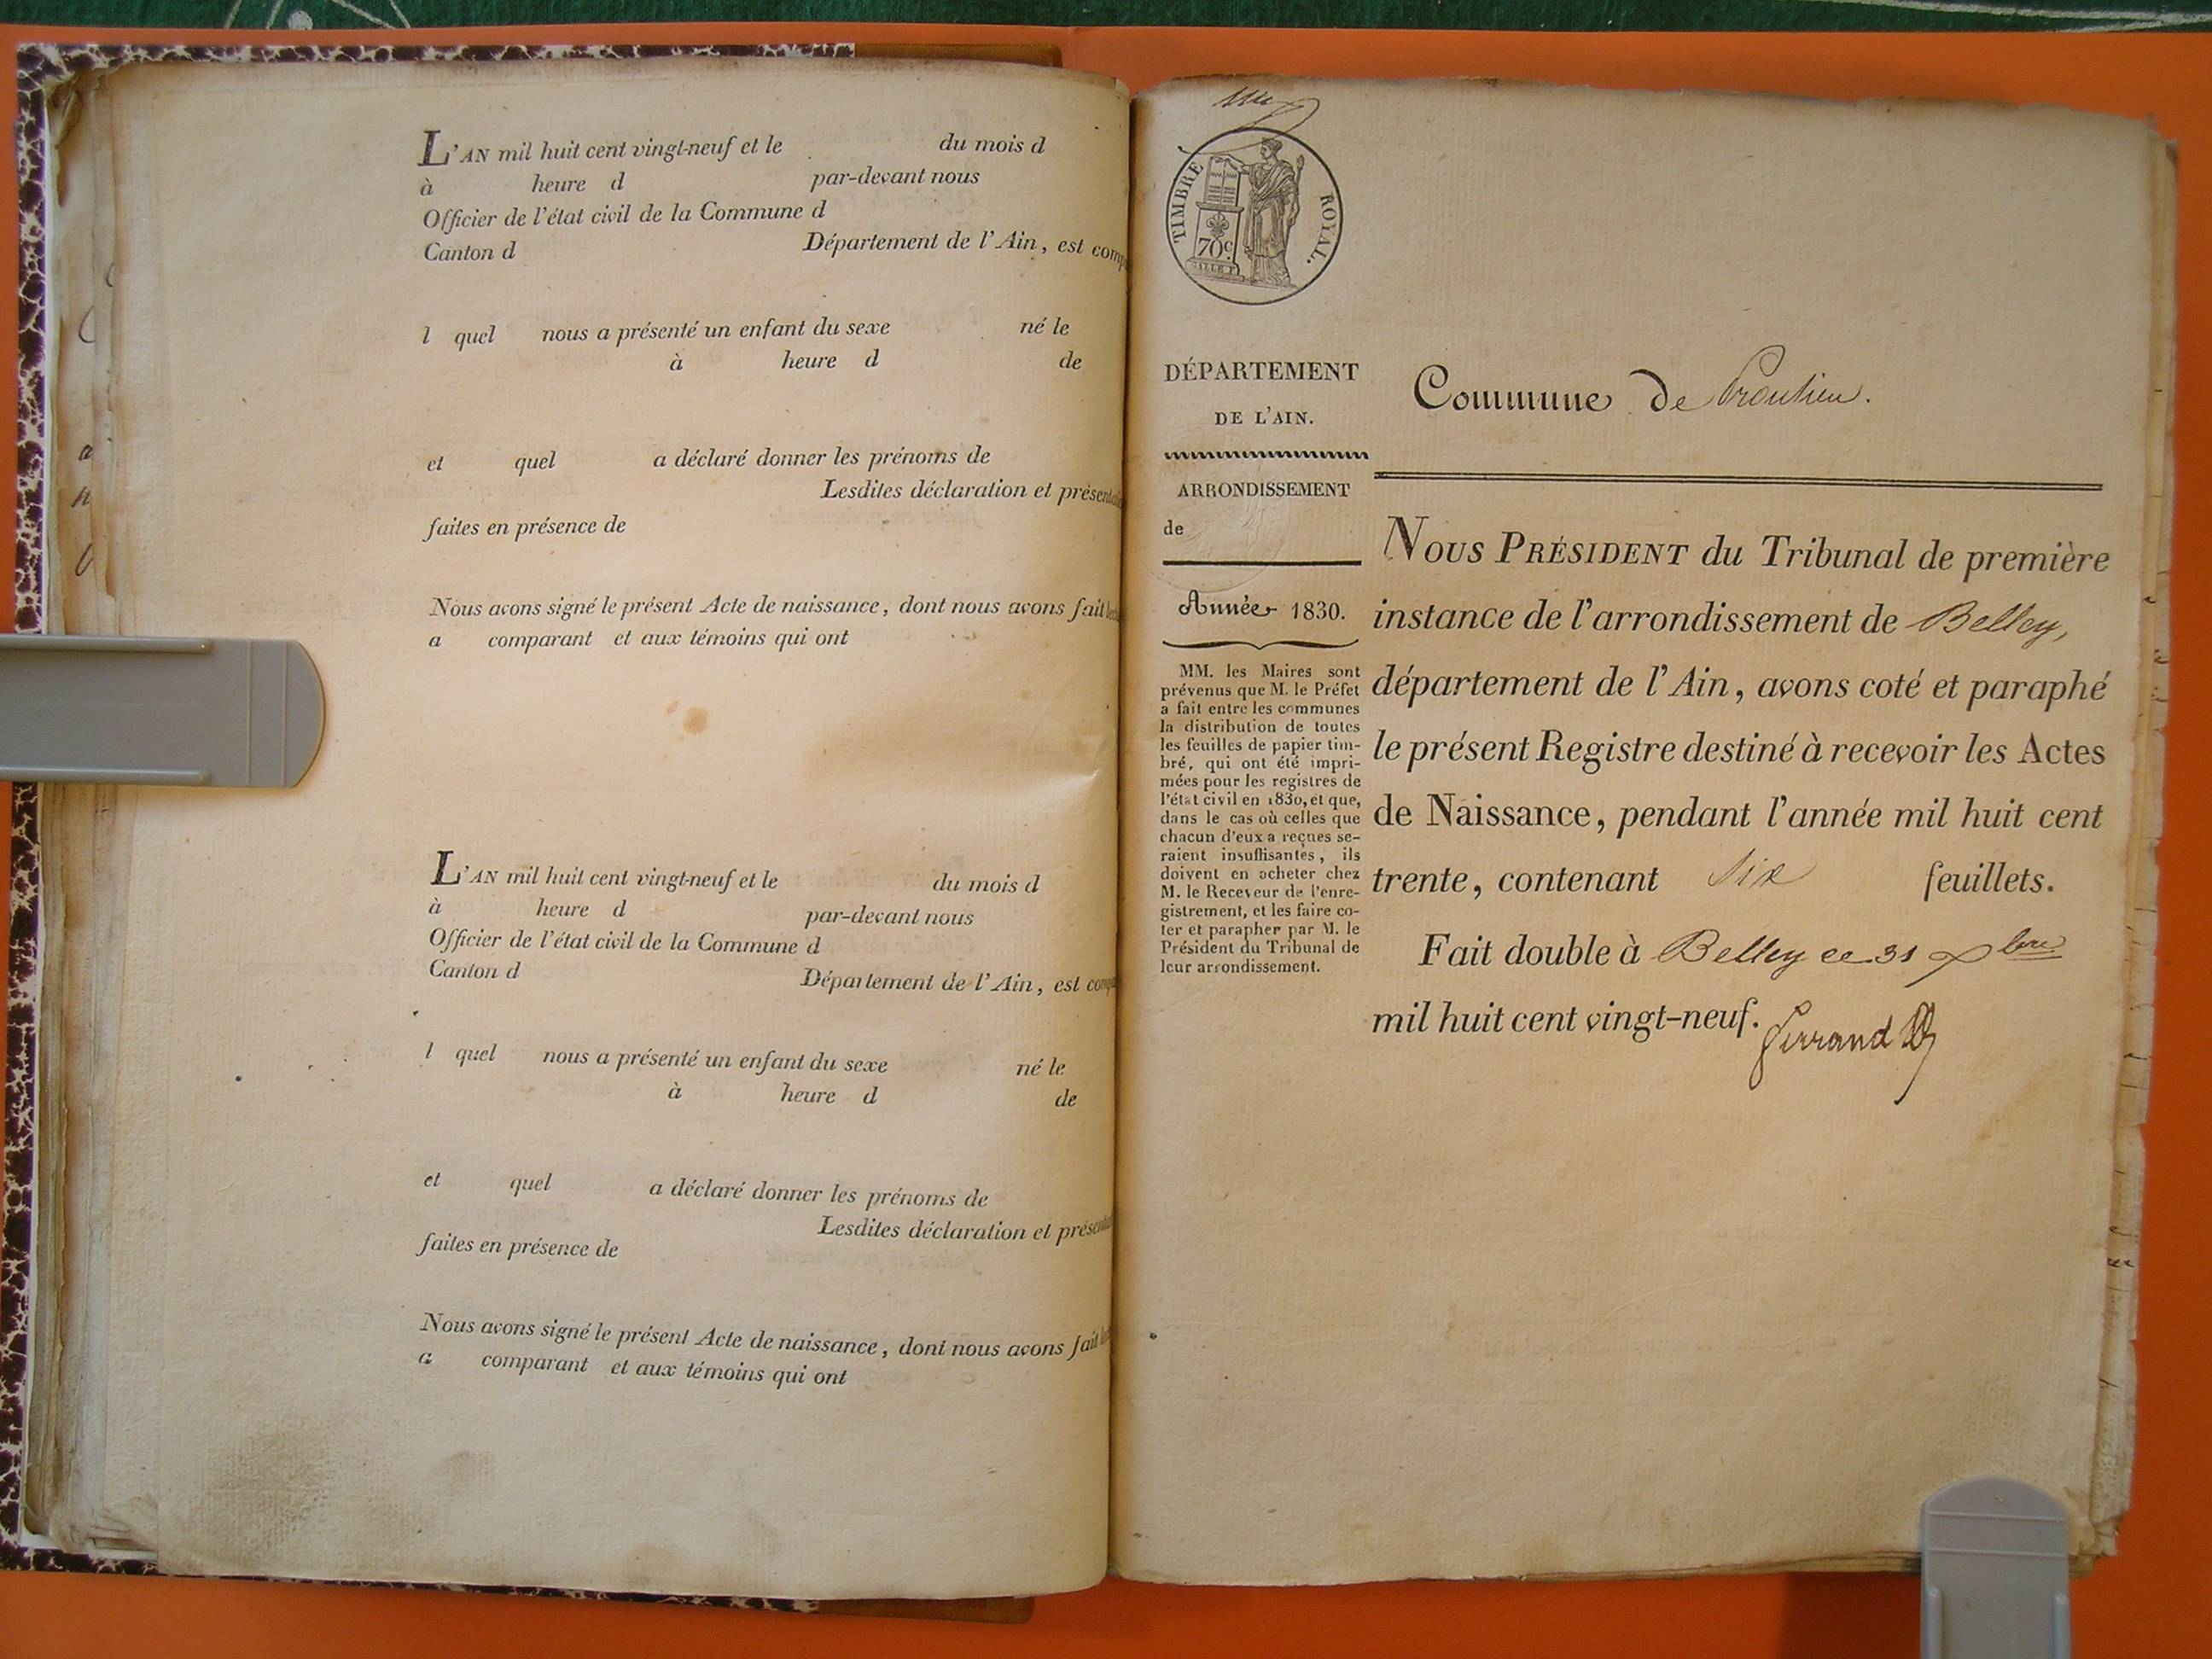 L'AN mil huit cent vingt-neuf et le du mois d
à heure d par-devant nous
Officier de l'état civil de la Commune d
Canton d Département de l'Ain, est comp
l quel nous a présenté un enfant du sexe né le
à heure d de
et quel a déclaré donner les prénoms de
Lesdites déclaration et présenta
faites en présence de
Nous avons signé le présent Acte de naissance, dont nous avons fait lec
a comparant et aux témoins qui ont
L'AN mil huit cent vingt-neuf et le du mois d
à heure d par-devant nous
Officier de l'état civil de la Commune d
Canton d Département de l'Ain, est comp
l quel nous a présenté un enfant du sexe né le
à heure d de
et quel a déclaré donner les prénoms de
Lesdites déclaration et présenta
faites en présence de
Nous avons signé le présent Acte de naissance, dont nous avons fait
a comparant et aux témoins qui ont
TIMBRE ROYAL.
70c
DÉPARTEMENT
DE L'AIN.
ARRONDISSEMENT
de
Année 1830.
MM. les Maires sont
prévenus que M. le Préfet
a fait entre les communes
la distribution de toutes
les feuilles de papier tim-
bré, qui ont été impri-
mées pour les registres de
l'état civil en 1830, et que,
dans le cas où celles que
chacun d'eux a reçues se-
raient insuffisantes, ils
doivent en acheter chez
M. le Receveur de l'enre-
gistrement, et les faire co-
ter et parapher par M. le
Président du Tribunal de
leur arrondissement.
Commune de Proulieu.
NOUS PRÉSIDENT du Tribunal de première
instance de l'arrondissement de Belley,
département de l'Ain, avons coté et paraphé
le présent Registre destiné à recevoir les Actes
de Naissance, pendant l'année mil huit cent
trente, contenant Six feuillets.
Fait double à Belley ce 31 Xbre
mil huit cent vingt-neuf.
Ferrand